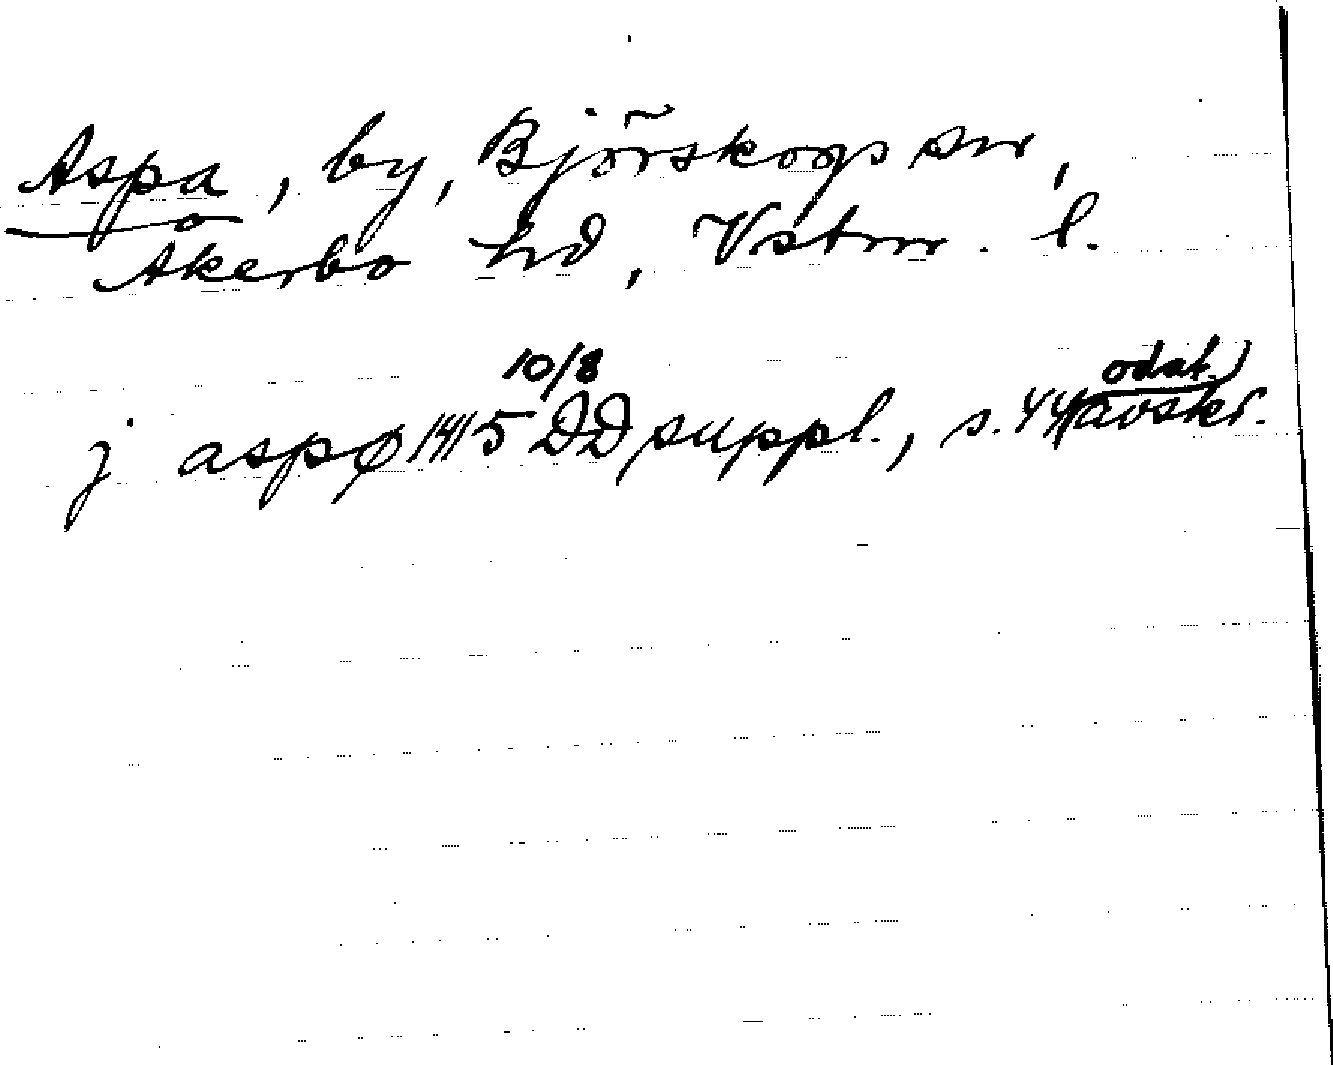 Aspa, by, Björskogs sn,
Åkerbo hd, Vstm. l.
j aspø 1415 10/8 DD suppl., s. 44 (avskr. odat.)